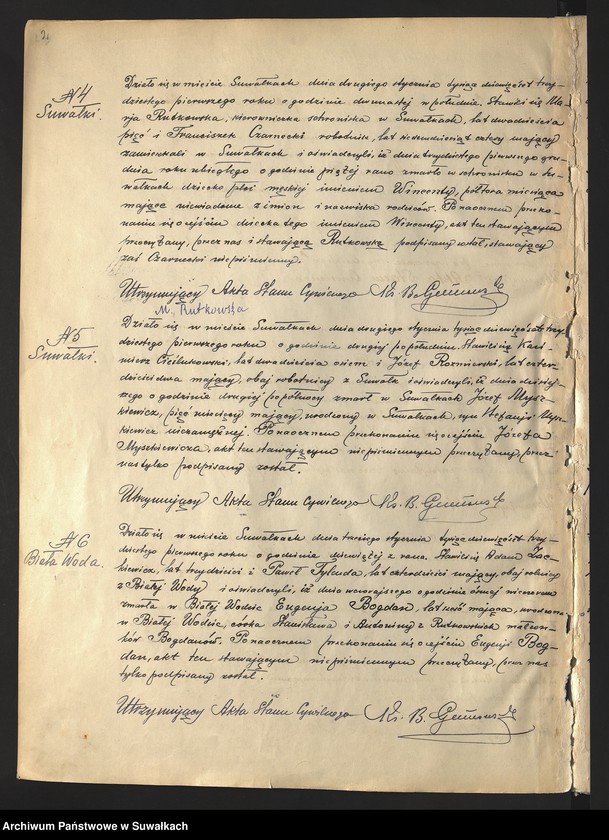 2
N 4
Suwałki.
Działo się w mieście Suwałkach dnia drugiego stycznia tysiąc dziewięćset trzy-
dziestego pierwszego roku o godzinie dwunastej w południe. Stawili się Ma-
rja Rutkowska, kierowniczka schroniska w Suwałkach, lat dwadzieścia
pięć i Franciszek Czarnecki robotnik, lat siedemdziesiąt cztery mający
zamieszkali w Suwałkach i oświadczyli, iż dnia trzydziestego pierwszego gru-
dnia roku ubiegłego o godzinie piątej rano zmarło w schronisku w Su-
wałkach dziecko płci męskiej imieniem Wincenty, półtora miesiąca
mające niewiadome z imion i nazwiska rodziców. Po naocznem przeko-
naniu się o zejściu dziecka tego imieniem Wincenty, akt ten stawającym
przeczytany, przez nas i stawającą Rutkowską podpisany został, stawający
zaś Czarnecki niepiśmienny.
Utrzymujący Akta Stanu Cywilnego Ks. B.
M. Rutkowska
N 5
Suwałki.
Działo się w mieście Suwałkach dnia drugiego stycznia tysiąc dziewięćset trzy-
dziestego pierwszego roku o godzinie drugiej po południu. Stawili się Kazi-
mierz lat dwadzieścia osiem i Józef lat czter-
dzieści dwa mający, obaj robotnicy z Suwałk i oświadczyli, iż dnia dzisiej-
szego o godzinie drugiej po północy zmarł w Suwałkach Józef Mysz-
kiewicz, pięć miesięcy mający, urodzony w Suwałkach, syn Stefanji Mysz-
kiewicz niezamężnej. Po naocznem przekonaniu się o zejściu Józefa
Myszkiewicza, akt ten stawającym niepiśmiennym przeczytany, przez
nas tylko podpisany został.
Utrzymujący Akta Stanu Cywilnego Ks. B.
N 6
Biała Woda.
Działo się w mieście Suwałkach dnia trzeciego stycznia tysiąc dziewięćset trzy-
dziestego pierwszego roku o godzinie dziewiątej z rana. Stawili się Adam Zac-
kiewicz, lat trzydzieści i Paweł lat czterdzieści mający, obaj rolnicy
z Białej Wody i oświadczyli, iż dnia wczorajszego o godzinie ósmej wieczorem
zmarła w Białej Wodzie Eugenja Bogdan, lat sześć mająca, urodzona
w Białej Wodzie, córka Stanisława i Antoniny z Rutkowskich małżon-
ków Bogdanów. Po naocznem przekonaniu się o zejściu Eugenji Bog-
dan, akt ten stawającym niepiśmiennym przeczytany, przez nas
tylko podpisany został.
Utrzymujący Akta Stanu Cywilnego Ks. B.
Archiwum Państwowe w Suwałkach